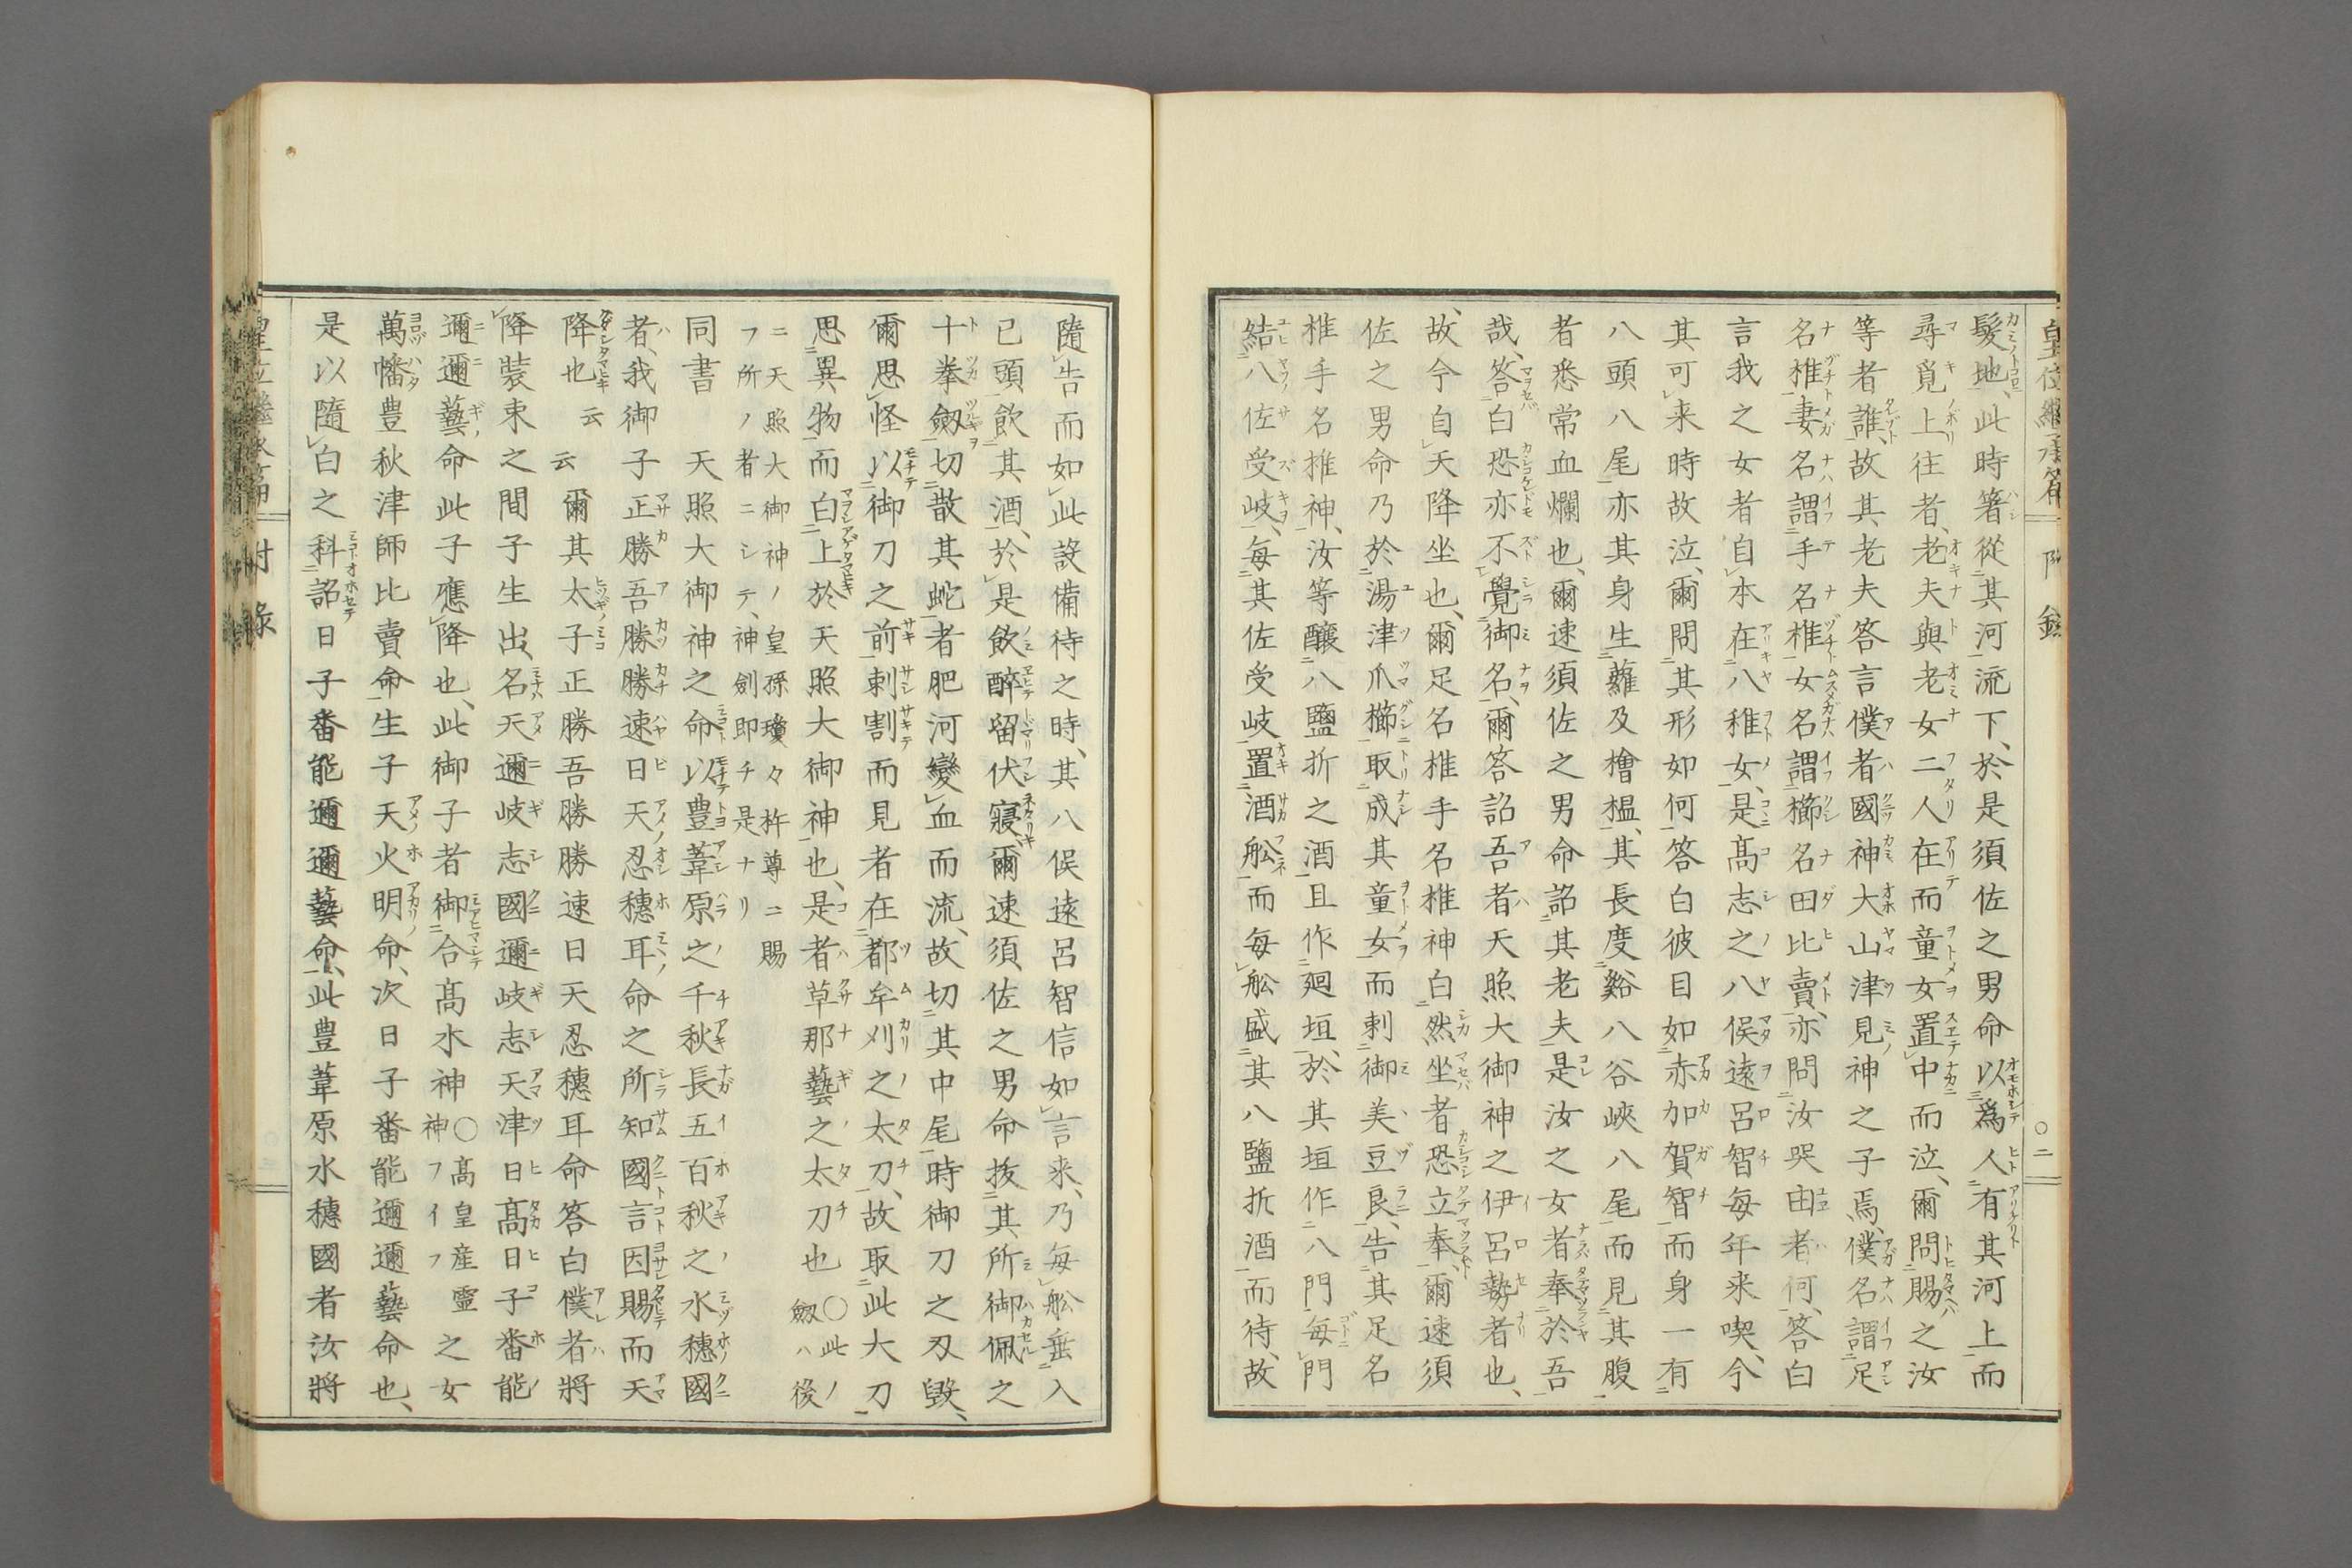 皇位繼承篇 附錄 ○二
髮地、此時箸從其河流下、於是須佐之男命以爲人有其河上而
尋覓上往者、老夫與老女二人在而童女置中而泣、爾問賜之汝
等者誰、故其老夫答言僕者國神大山津見神之子焉、僕名謂足
名椎妻名謂手名椎女名謂櫛名田比賣、亦問汝哭由者何、答白
言我之女者自本在八稚女、是髙志之八俣遠呂智每年来喫、今
其可来時故泣、爾問其形如何答白彼目如赤加賀智而身一有
八頭八尾亦其身生蘿及檜榲、其長度谿八谷峽八尾而見其腹
者悉常血爛也、爾速須佐之男命詔其老夫是汝之女者奉於吾
哉、答白恐亦不覺御名、爾答詔吾者天照大御神之伊呂勢者也、
故、今自天降坐也、爾足名椎手名椎神白然坐者恐立奉、爾速須
佐之男命乃於湯津爪櫛取成其童女而刺御美豆良、告其足名
椎手名椎神、汝等釀八鹽折之酒且作廻垣、於其垣作八門每門
結八佐受岐、每其佐受岐置酒舩而每舩盛其八鹽折酒而待、故
隨告而如此設備待之時、其八俣遠呂智信如言来、乃每舩垂入
已頭飮其酒、於是飮醉留伏寢、爾速須佐之男命抜其所御佩之
十拳劔切散其蛇者肥河變血而流、故切其中尾時御刀之刄毀、
爾思怪以御刀之前刺割而見者在都牟刈之太刀、故取此大刀
思異物而白上於天照大御神也、是者草那藝之太刀也 ○此ノ劔ハ後
ニ天照大御神ノ皇孫瓊々杵尊ニ賜
フ所ノ者ニシテ、神劍即チ是ナリ
同書 天照大御神之命以豊葦原之千秋長五百秋之水穗國
者、我御子正勝吾勝勝速日天忍穗耳命之所知國言因賜而天
降也 云云 爾其太子正勝吾勝勝速日天忍穗耳命答白僕者將
降裝束之間子生出、名天邇岐志國邇岐志天津日髙日子番能
邇邇藝命此子應降也、此御子者御合髙水神 ○髙皇産靈神フイフ 之女
萬幡豊秋津師比賣命生子天火明命、次日子番能邇邇藝命也、
是以隨白之科詔日子番能邇邇藝命、此豊葦原水穗國者汝將
皇位繼承篇 附錄